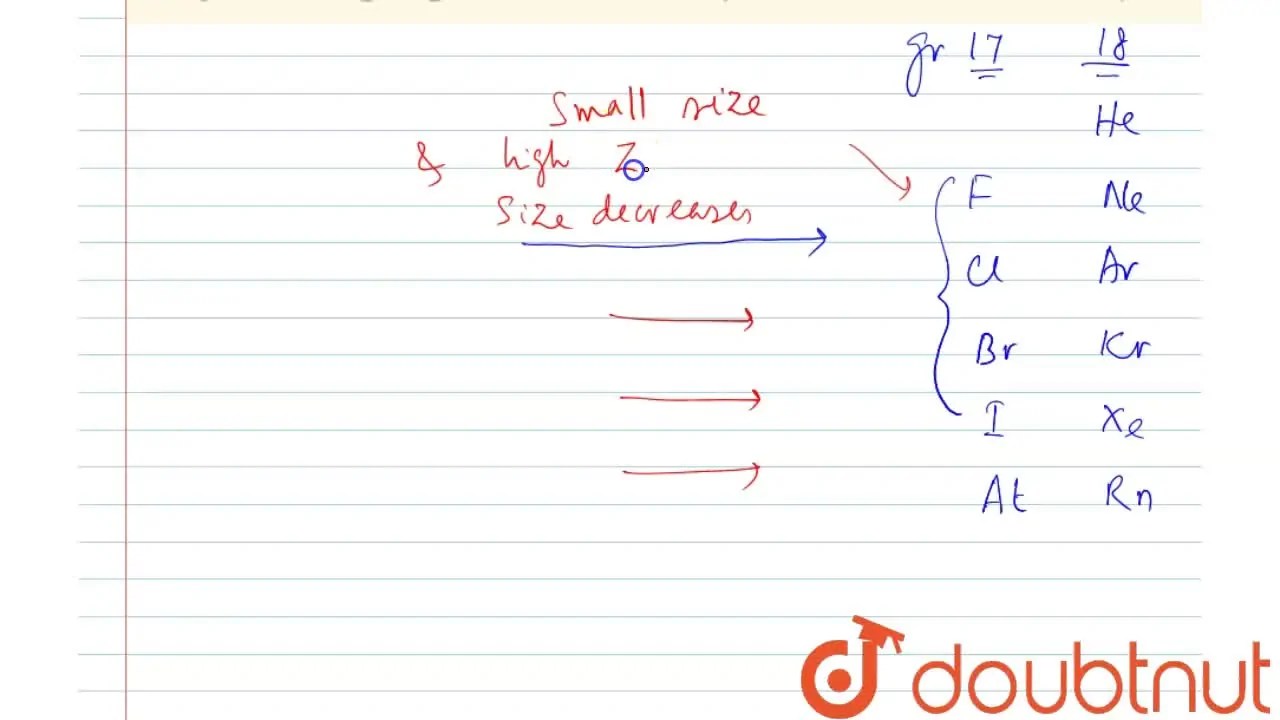 gr 17 18
He
Small size
& high Z
Size decreases
F Ne
Cl Ar
Br Kr
I Xe
At Rn
doubtnut